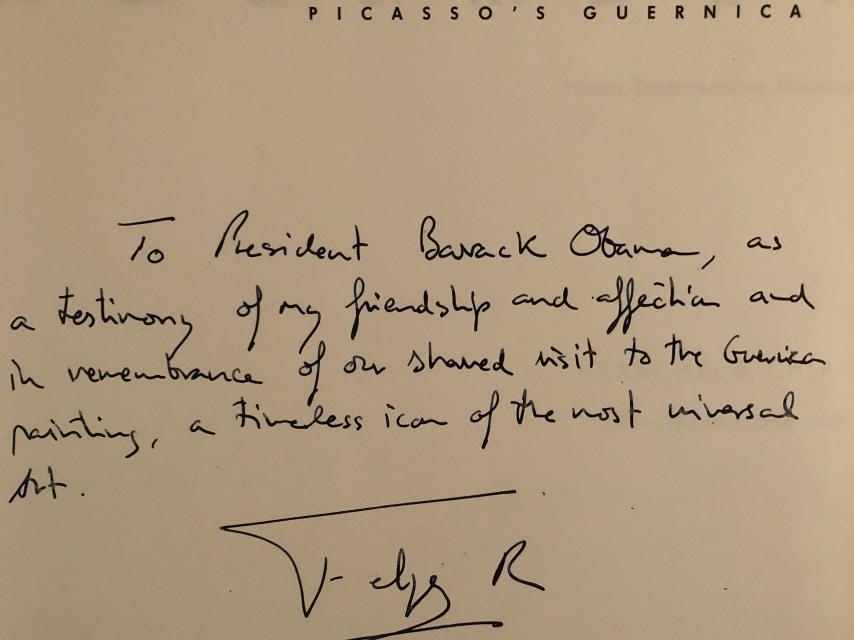 PICASSO'S GUERNICA
To President Barack Obama, as
a testimony of my friendship and affection and
in remembrance of our shared visit to the Guernica
painting, a timeless icon of the most universal
Art.
Felipe R